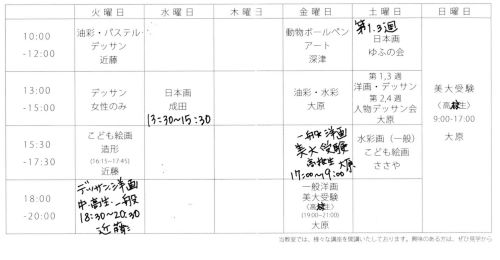 火曜日 水曜日 木曜日 金曜日 土曜日 日曜日
10:00
-12:00
油彩・パステル
デッサン
近藤
動物ボールペン
アート
深津
第1.3週
日本画
ゆふの会
13:00
-15:00
デッサン
女性のみ
日本画
成田
13:30~15:30
油彩・水彩
大原
第1,3週
洋画・デッサン
第2,4週
人物デッサン会
大原
美大受験
(高校生)
9:00-17:00
大原
15:30
-17:30
こども絵画
造形
(16:15~17:45)
近藤
一般洋画
美大受験
高校生 大原
17:00~19:00
水彩画(一般)
こども絵画
ささや
18:00
-20:00
デッサン洋画
中・高生・一般
18:30~20:30
近藤
一般洋画
美大受験
(高校生)
(19:00~21:00)
大原
当教室では、様々な講座を開講いたしております。興味のある方は、ぜひ見学から